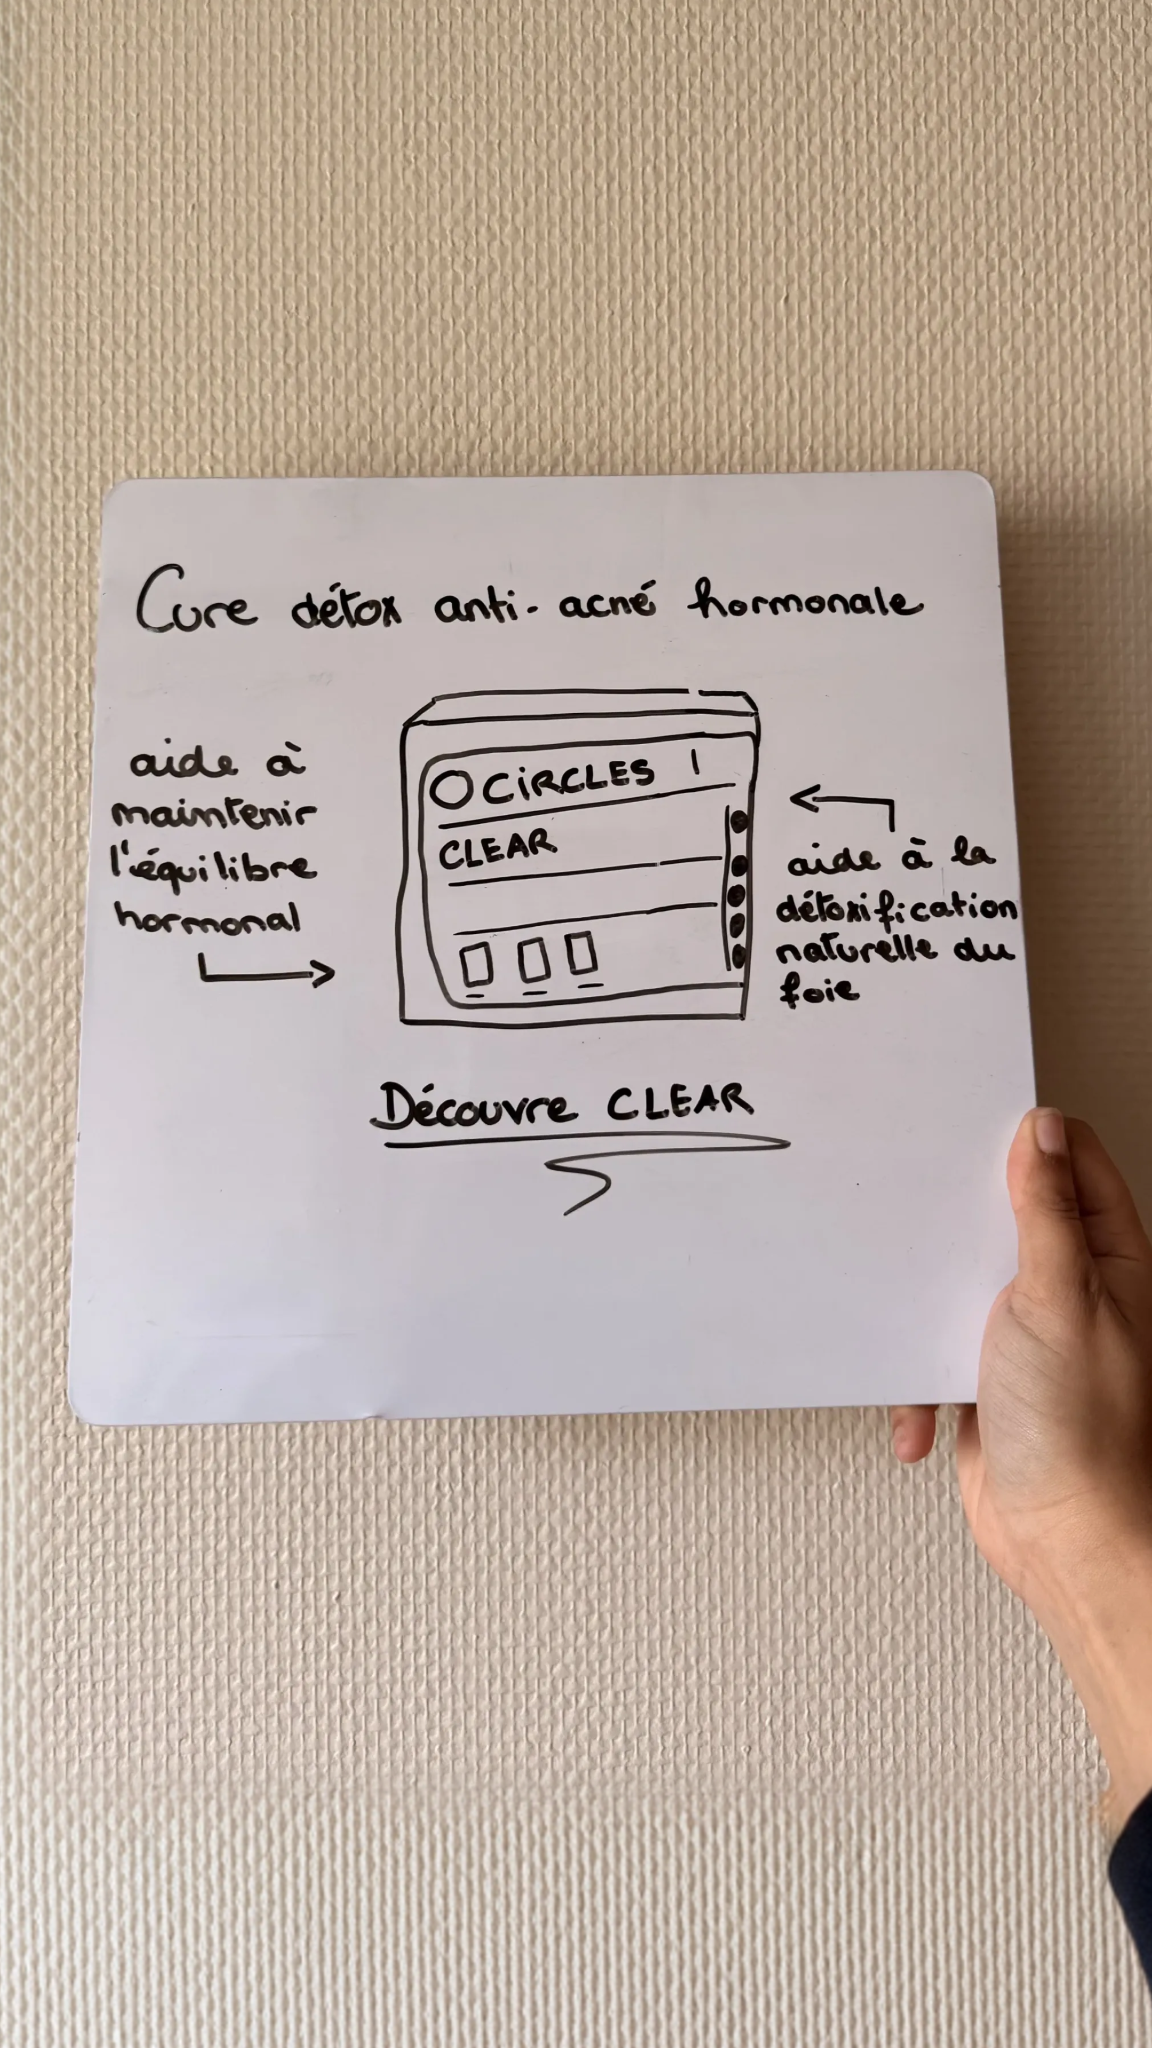 Cure détox anti-acné hormonale
aide à
maintenir
l'équilibre
hormonal
CiRCLES
CLEAR
aide à la
détoxification
naturelle du
foie
Découvre CLEAR